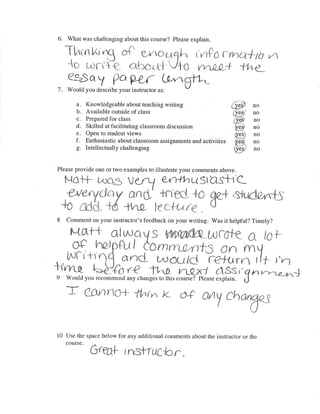 6. What was challenging about this course? Please explain.
Thinking of enough information
to write about to meet the
essay paper length.
7. Would you describe your instructor as:
a. Knowledgeable about teaching writing yes no
b. Available outside of class yes no
c. Prepared for class yes no
d. Skilled at facilitating classroom discussion yes no
e. Open to student views yes no
f. Enthusiastic about classroom assignments and activities yes no
g. Intellectually challenging yes no
Please provide one or two examples to illustrate your comments above.
Matt was very enthusiastic
everyday and tried to get students
to add to the lecture.
8 Comment on your instructor's feedback on your writing. Was it helpful? Timely?
Matt always made wrote a lot
of helpful comments on my
writing and would return it in
time before the next assignment
9 Would you recommend any changes to this course? Please explain.
I cannot think of any changes
10 Use the space below for any additional comments about the instructor or the
course.
Great instructor.